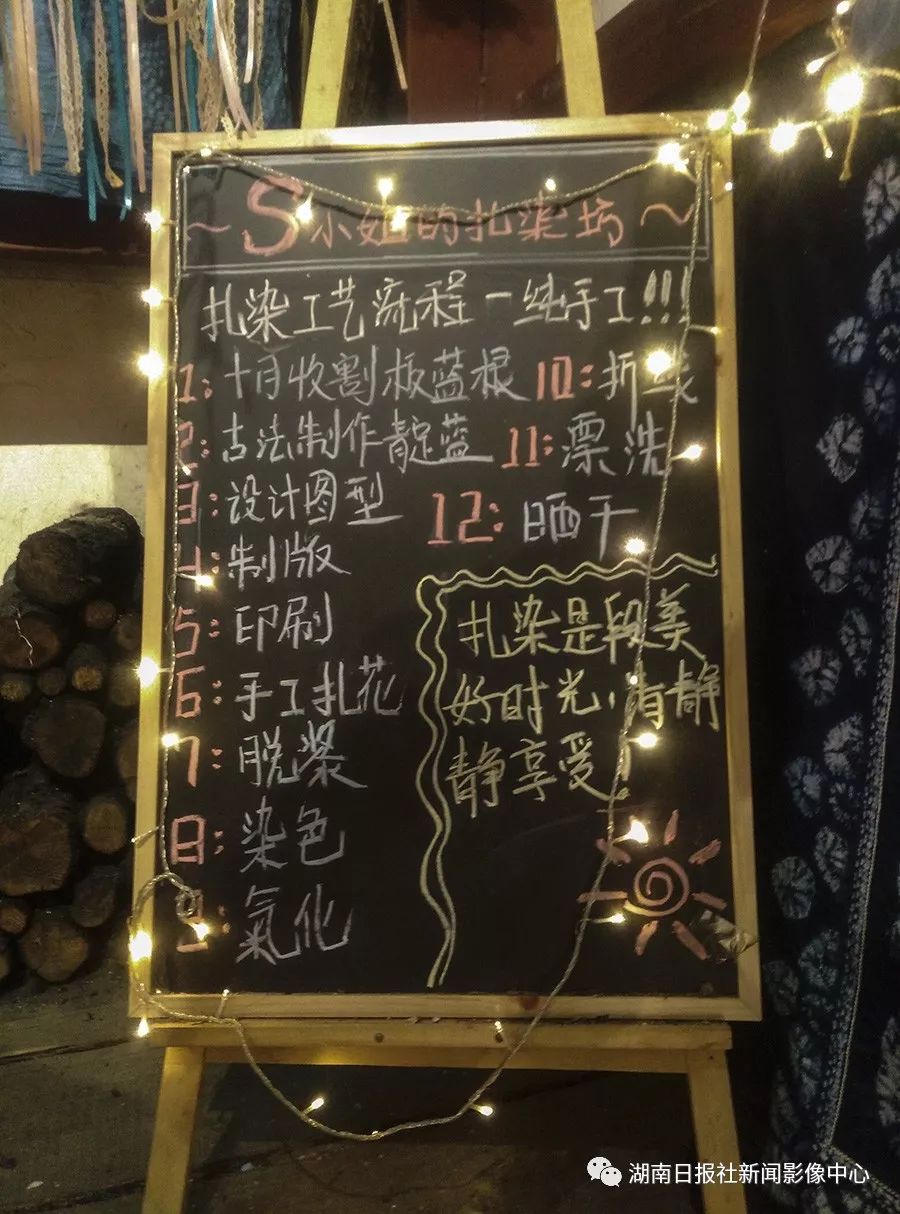 ~S小姐的扎染坊~
扎染工艺流程一纯手工!!!
1:十月收割板蓝根
2:古法制作靛蓝
3:设计图型
4:制版
5:印刷
6:手工扎花
7:脱浆
8:染色
9:氧化
10:折线
11:漂洗
12:晒干
扎染是段美
好时光,请静
静享受!
湖南日报社新闻影像中心